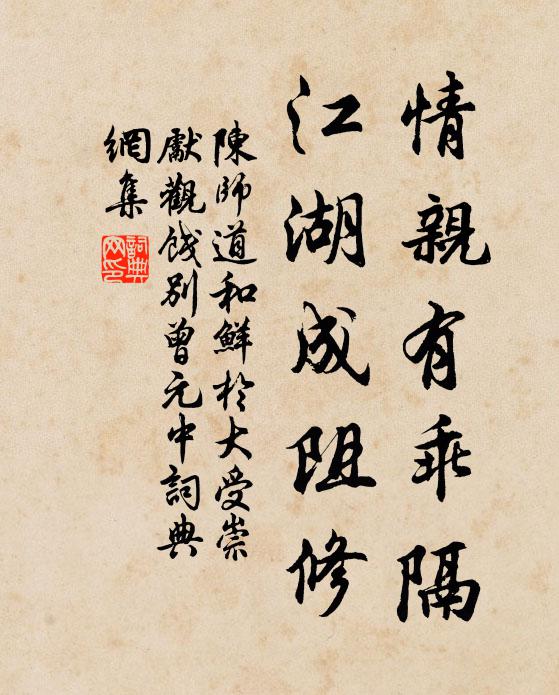 情親有乖隔
江湖成阻修
陳師道和鮮於大受崇
獻觀餞別曾元中詞典
網集
詞典
网印